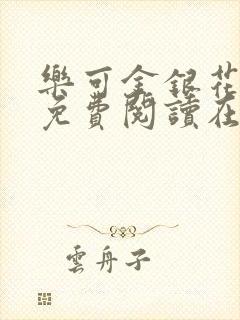 樂可金銀花
免費閱讀在
雲舟子